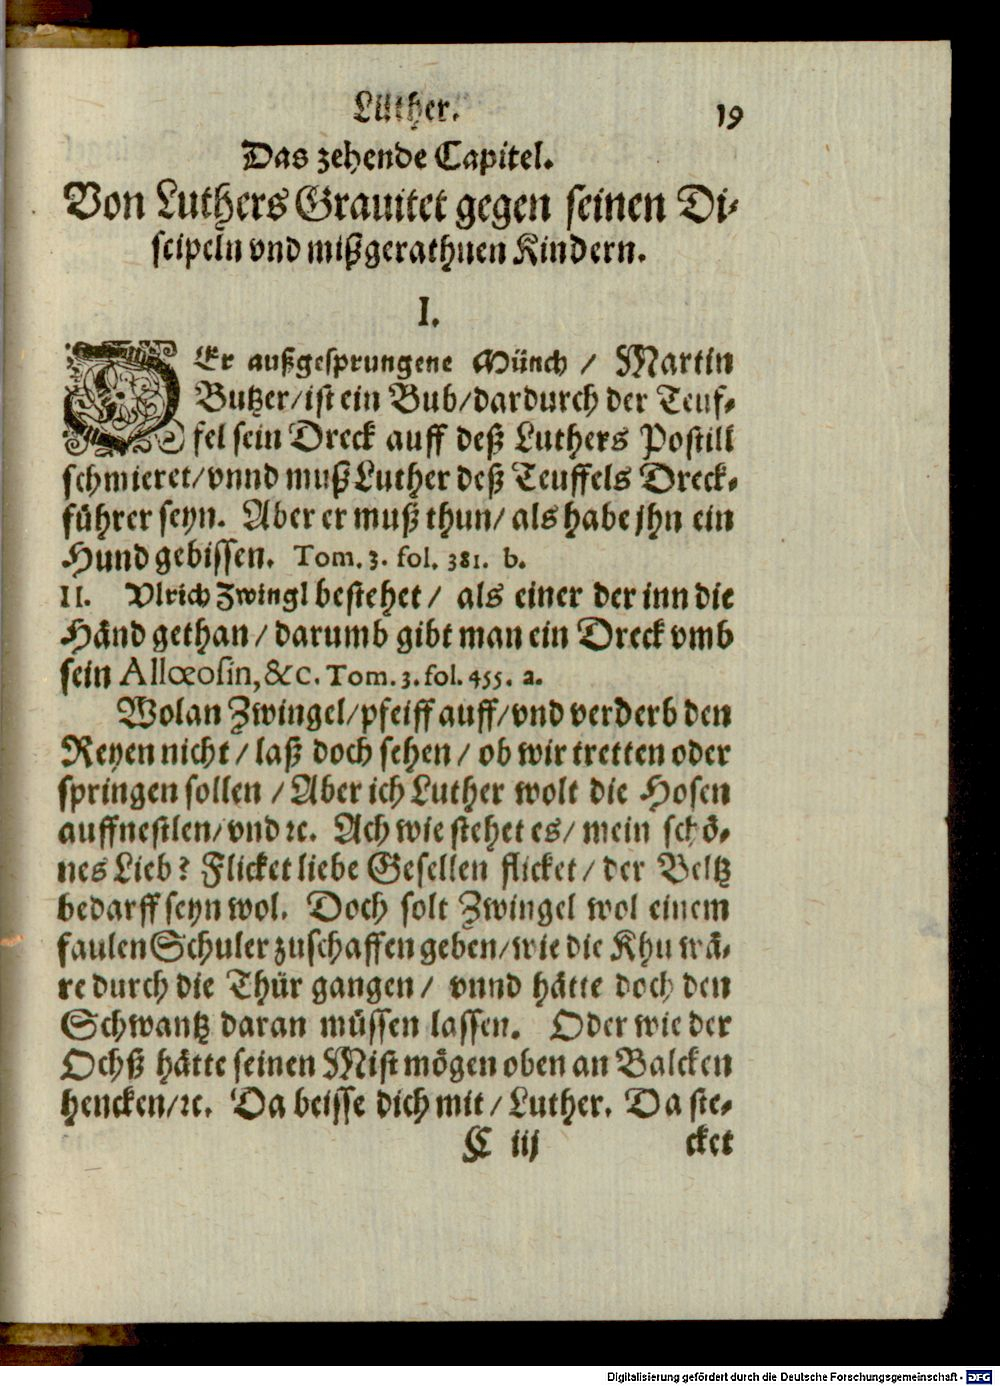 Luther. 19
Das zehende Capitel.
Von Luthers Grauitet gegen seinen Di-
scipeln vnd mißgerathnen Kindern.
I.
DEr außgesprungene Münch / Martin
Butzer / ist ein Bub / dardurch der Teuf-
fel sein Dreck auff deß Luthers Postill
schmieret / vnnd muß Luther deß Teuffels Dreck-
führer seyn. Aber er muß thun / als habe jhn ein
Hund gebissen. Tom. 3. fol. 381. b.
II. Vlrich Zwingl bestehet / als einer der inn die
Händ gethan / darumb gibt man ein Dreck vmb
sein Allœosin, &c. Tom. 3. fol. 455. a.
Wolan Zwingel / pfeiff auff / vnd verderb den
Reyen nicht / laß doch sehen / ob wir tretten oder
springen sollen / Aber ich Luther wolt die Hosen
auffnestlen / vnd ꝛc. Ach wie stehet es / mein schö-
nes Lieb? Flicket liebe Gesellen flicket / der Beltz
bedarff seyn wol. Doch solt Zwingel wol einem
faulen Schuler zuschaffen geben / wie die Khu wä-
re durch die Thür gangen / vnnd hätte doch den
Schwantz daran müssen lassen. Oder wie der
Ochß hätte seinen Mist mögen oben an Balcken
hencken / ꝛc. Da beisse dich mit / Luther. Da ste-
C iij cket
Digitalisierung gefördert durch die Deutsche Forschungsgemeinschaft - DFG